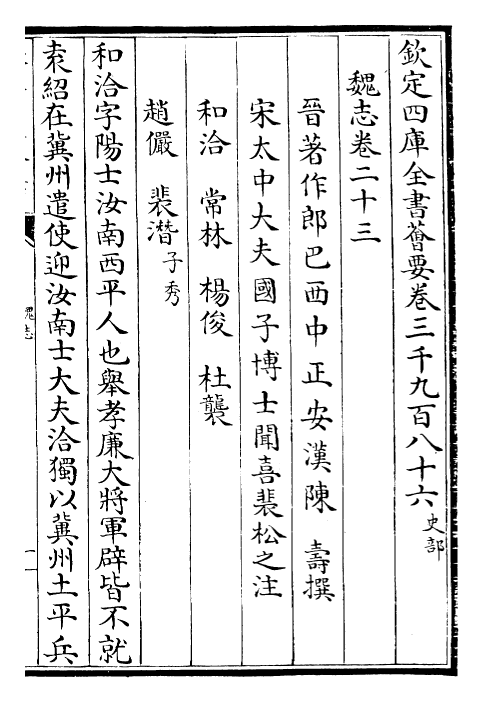 欽定四庫全書薈要卷三千九百八十六 史部
魏志卷二十三
晉著作郎巴西中正安漢陳 壽撰
宋太中大夫國子博士聞喜裴松之注
和洽 常林 楊俊 杜襲
趙儼 裴潛 子秀
和洽字陽士汝南西平人也舉孝廉大將軍辟皆不就
袁紹在冀州遣使迎汝南士大夫洽獨以冀州土平兵
魏志